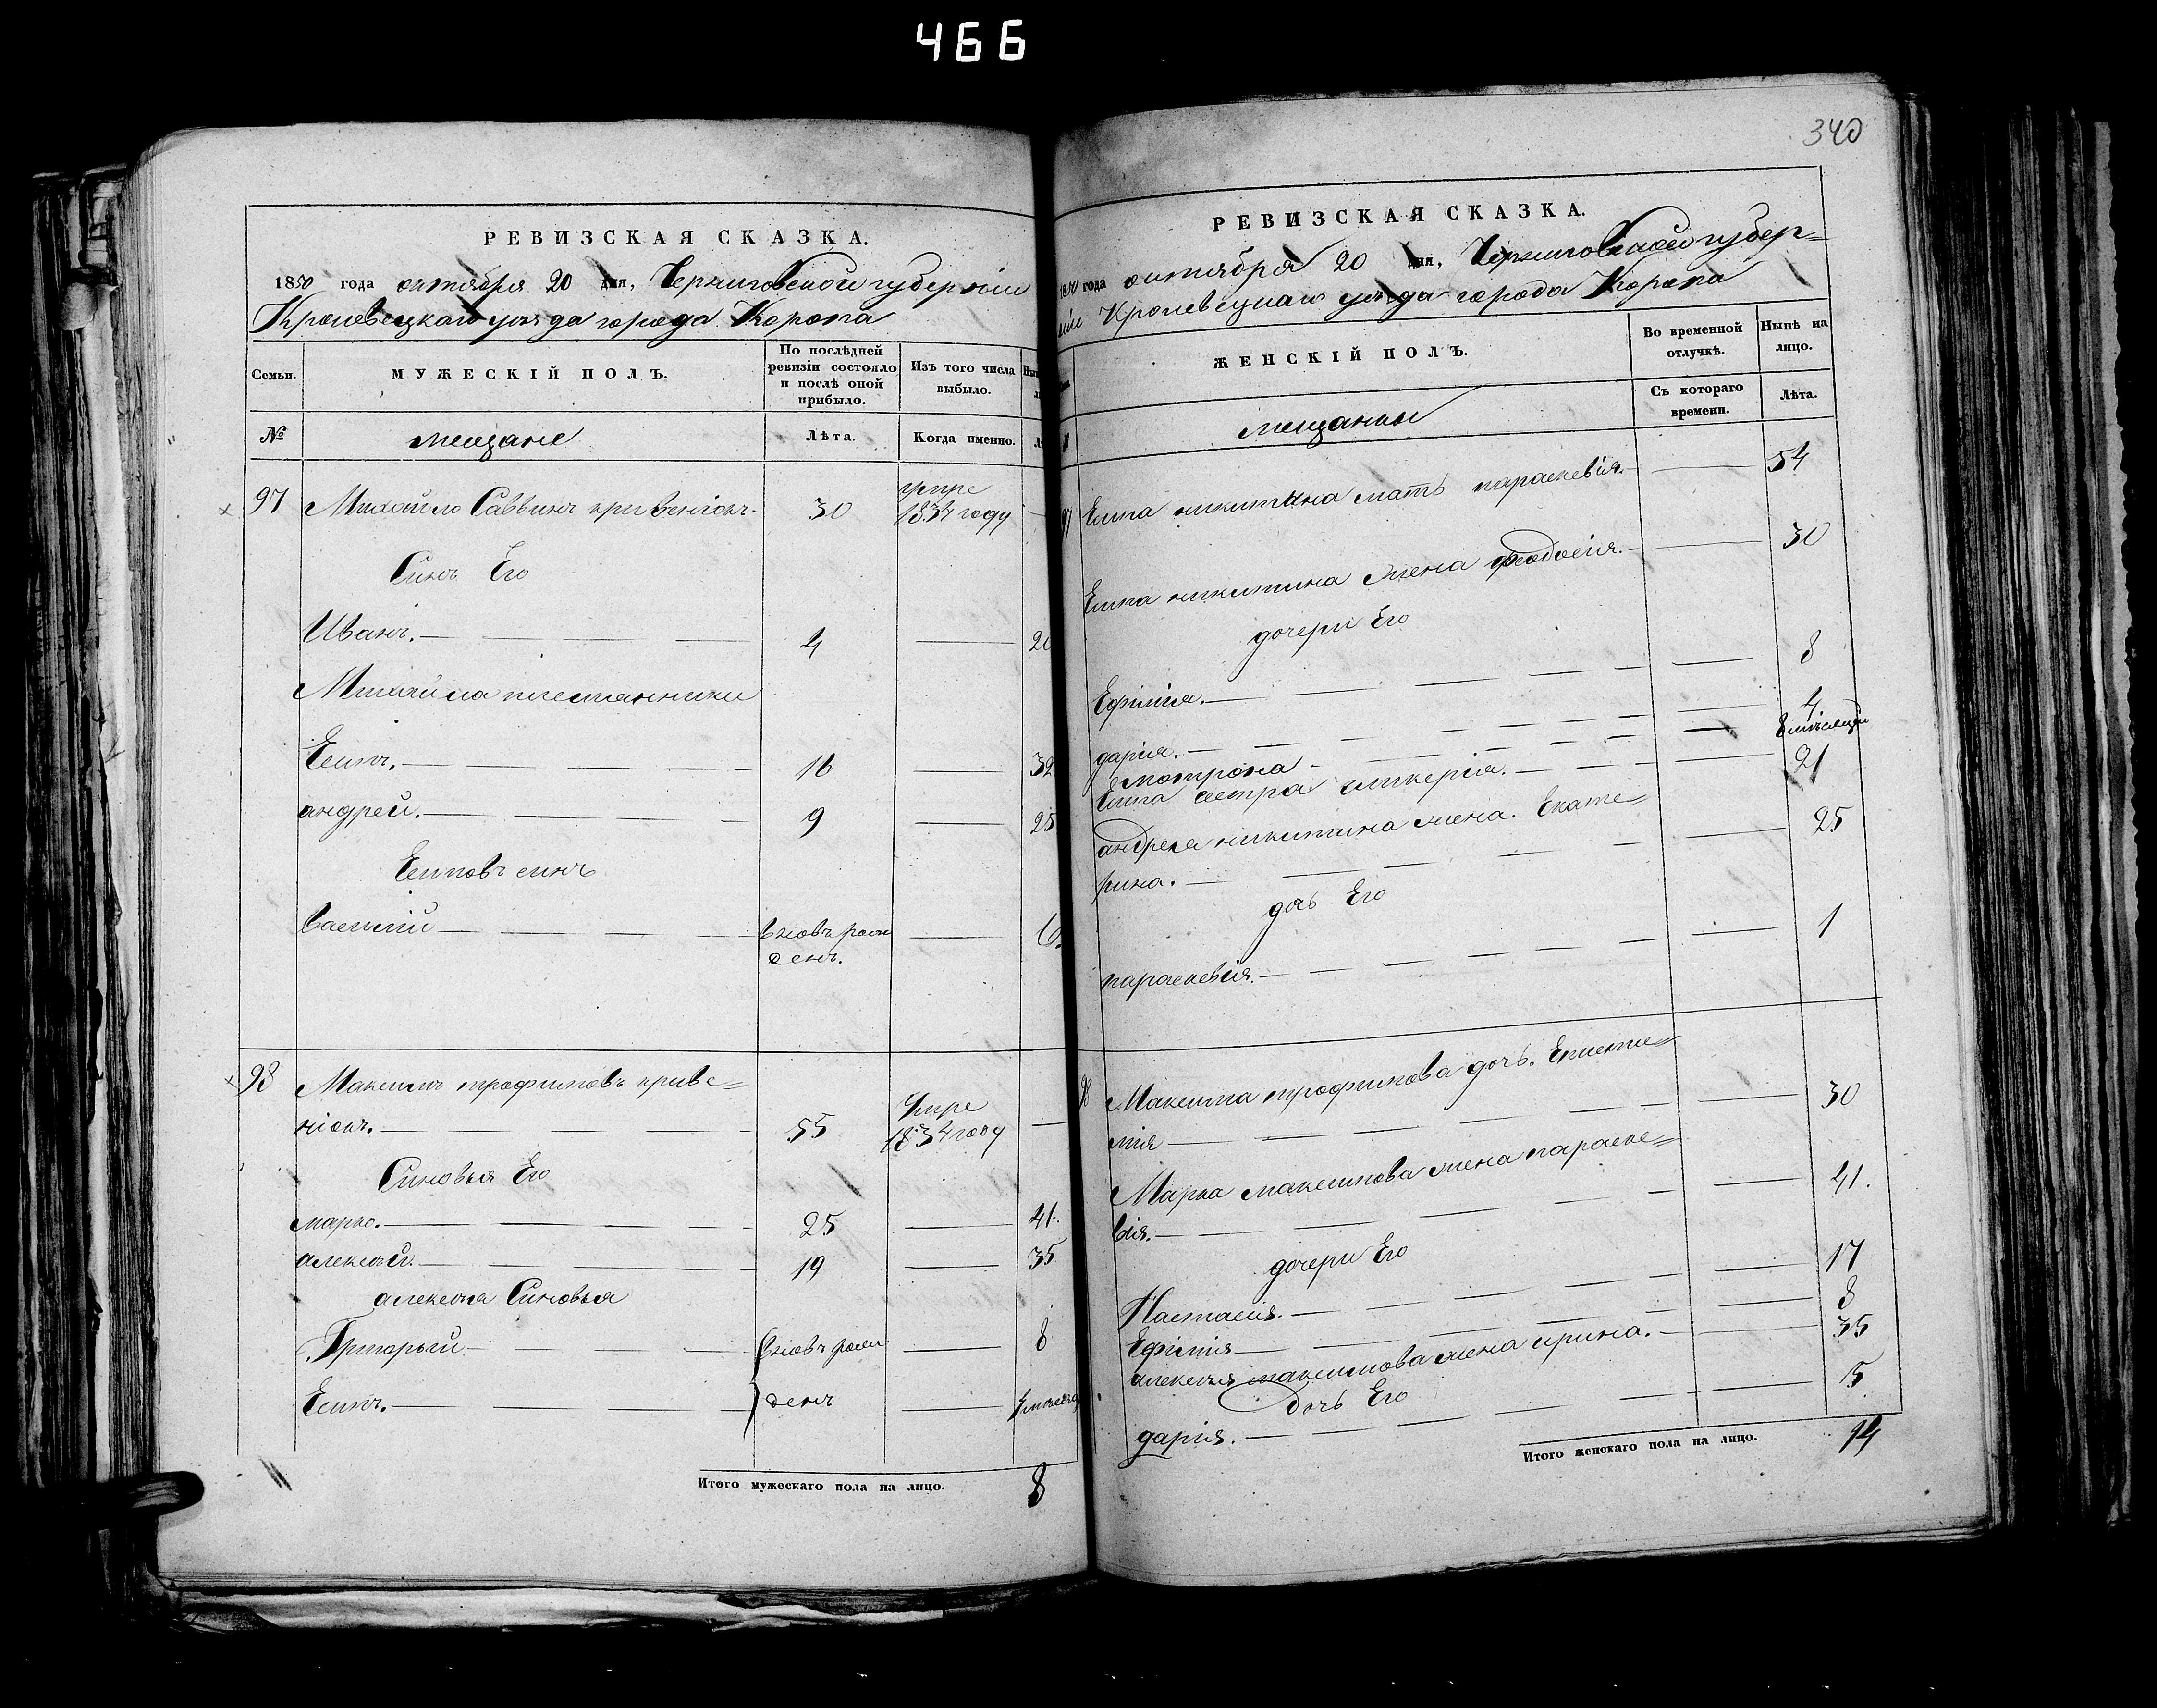 466
РЕВИЗСКАЯ СКАЗКА.
1850 года октября 20 дня, Черниговской губерніи
Кролевецкаго уѣзда города Коропа
Семьи.
МУЖЕСКІЙ ПОЛЪ.
По послѣдней ревизіи состояло и послѣ оной прибыло.
Изъ того числа выбыло.
№
мещане
Лѣта.
Когда именно.
97 Михайло Саввинъ кривенюкъ 30 умре 1834 году —
Синъ Его
Иванъ. — 4 — 20
Михайла племянники
Есипъ. — 16 — 32
андрей. — 9 — 25
Есиповъ синъ
Василій — вновь рожденъ. — 6
98 Максимъ трофимовъ криве=
нюкъ. — 55 умре 1834 году —
Синовья Его
марко. — 25 — 41.
алексѣй. — 19 — 35
алексѣя Синовья
Григорый — вновь рожденъ — 8
Есипъ. —
Итого мужескаго пола на лицо. 8
340
РЕВИЗСКАЯ СКАЗКА.
1850 года октября 20 дня, Черниговской губер=
ніи Кролевецкаго уѣзда города Коропа
ЖЕНСКІЙ ПОЛЪ.
Во временной отлучкѣ.
Нынѣ на лицо.
мещанки
Съ котораго времени.
Лѣта.
97 Есипа никитина мать параскевія. — 54
Есипа никитина жена феодосія. — 30
дочери Его
Ефимія. — 8
дарія. — 4
мотрона — 8 мѣсяцей
Есипа сестра гликерія. — 21
андрея никитина жена. Екате=
рина. — 25
дочь Его
параскевія. — 1
98 Максима трофимова дочь. Еписти=
мія — 30
Марка максимова жена параске=
вія. — 41.
дочери Его
Настасія. — 17
Ефимія — 8
алексѣя максимова жена ирина. — 35
дочь Его
дарія. — 5
Итого женскаго пола на лицо. 14